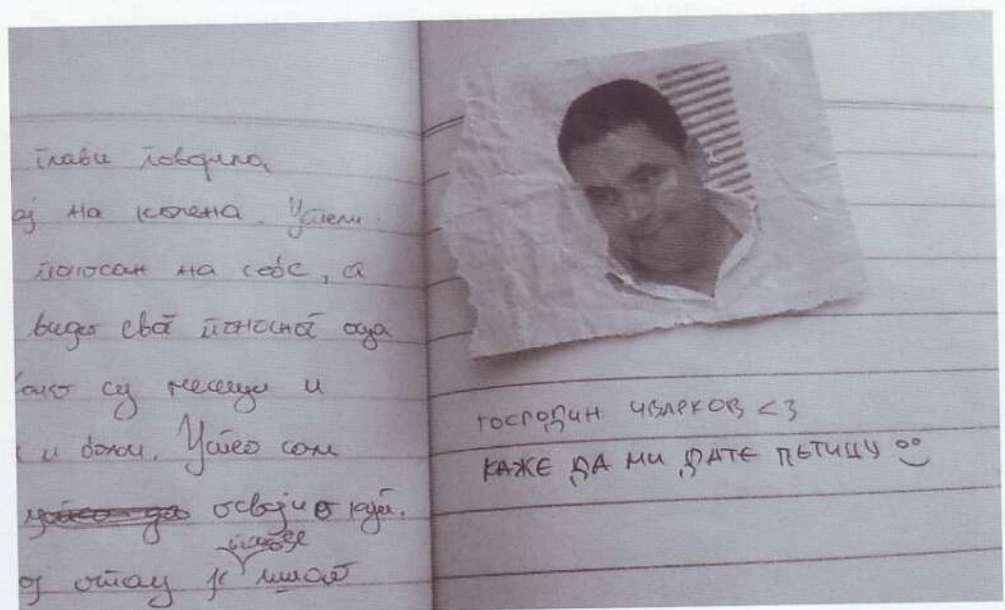 глави говорила
на колена. Успели
поносан на себе, а
видео свог поносног оца
су месеци и
и долази. Успео сам
освојио куп.
оцу је такође
госпОДИН ЧВАРКОВ <3
КАЖЕ ДА МИ ДАТЕ ПЕТИЦУ